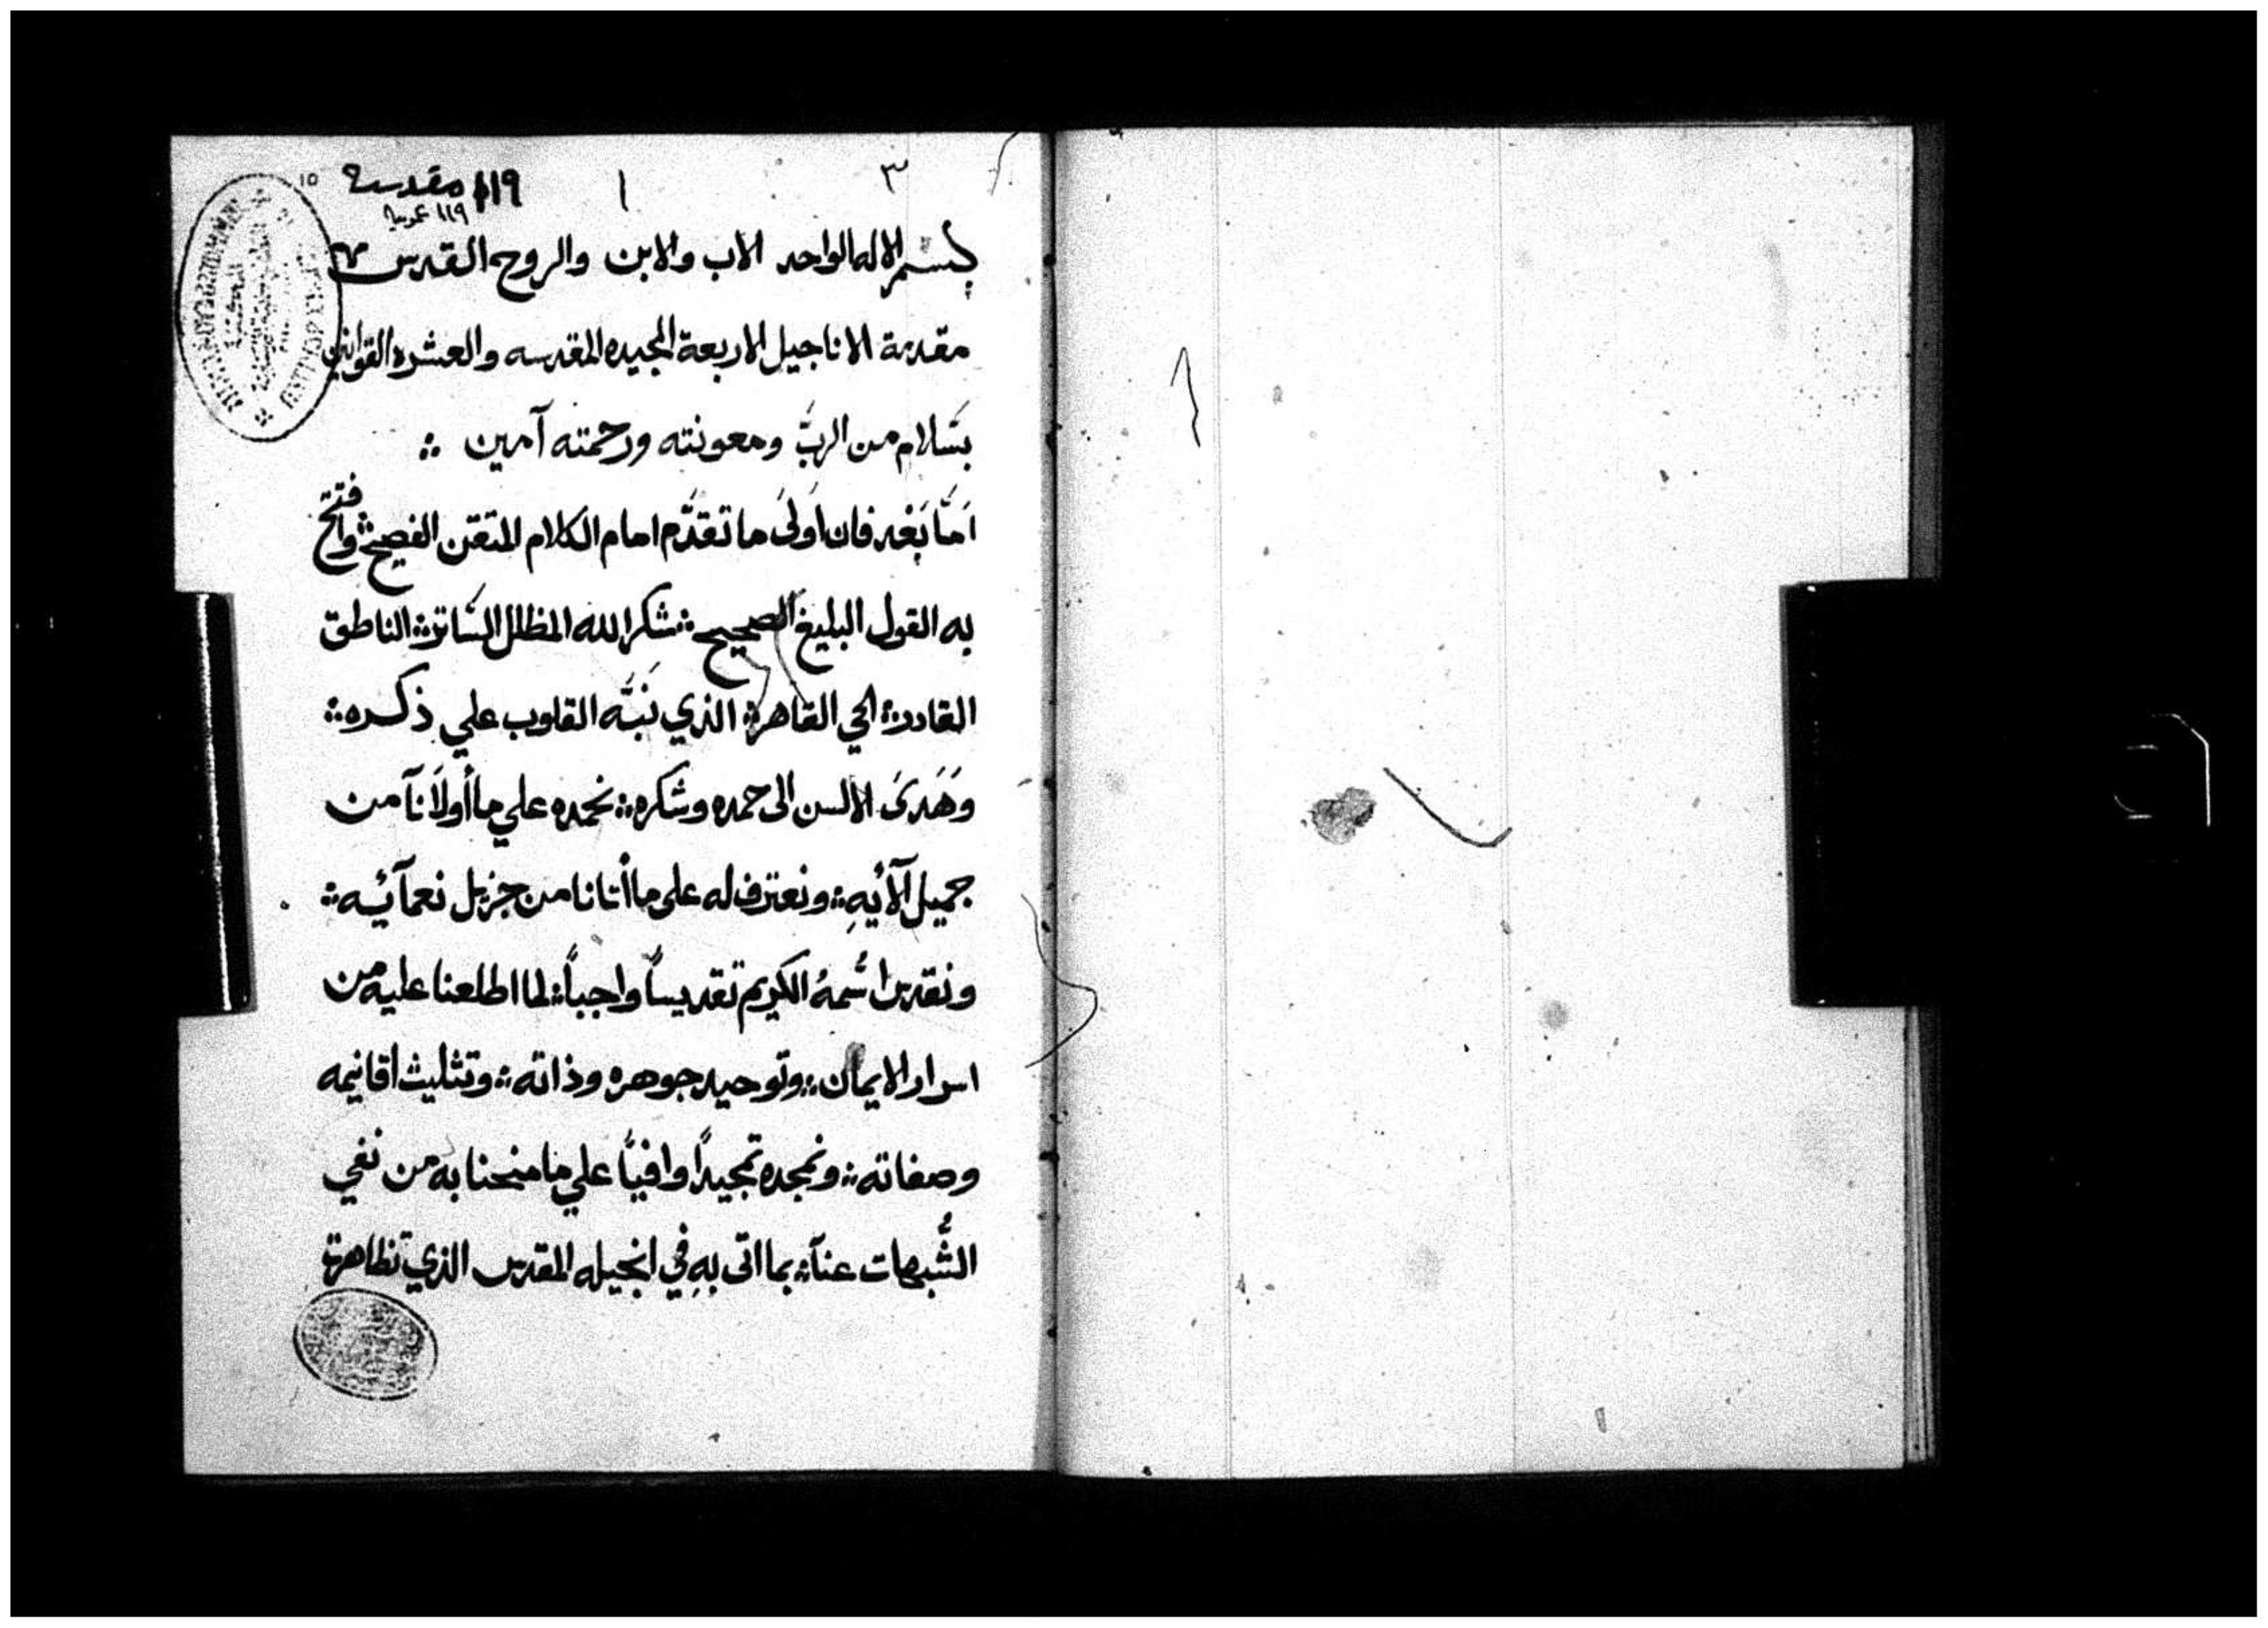 ٣ ١ ١١٩ مقدسة ١٥
١١٩ عربية
بسم الاله الواحد الاب والابن والروح القدس
مقدمة الاناجيل الاربعة المجيده المقدسه والعشره القوانين
بسَلام من الربّ ومعونته ورحمته آمين ⁘
اَمّا بَعْد فان اَولىَ ما تقدَّم امام الكلام المتقن الفصيح ⁘ وافتتح
به القول البليغ الصحيح ⁘ شكرا لله المظلل السّاتر ⁘ الناطق
القادر ⁘ الحي القاهر ⁘ الذي نَبَّه القلوب علي ذكره ⁘
وهَدىَ الالسن الى حمده وشكره ⁘ نحمده علي ما أولاَنآ من
جميل آلآئيهِ ⁘ ونعترف له على ما أتانا من جزيل نعمآئيه ⁘
ونقدس اسُمهُ الكريم تقديساً واجباً ⁘ لما اطلعنا عليه من
اسرار الايمان ⁘ وتوحيد جوهره وذاته ⁘ وتثليث اقانيمه
وصفاته ⁘ ونمجده تمجيداً وافياً علي ما منحنا به من نفي
الشُّبهات عنآ ⁘ بما اتى بهِ في انجيله المقدس الذي تظاهرة